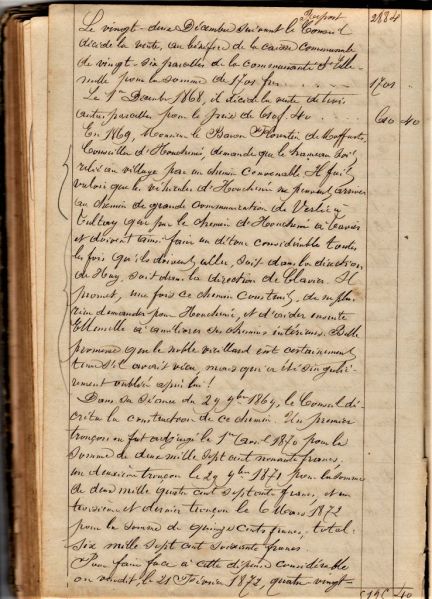 Report 2884
Le vingt-deux Décembre suivant le Conseil
décida la vente, au bénéfice de la caisse communale
de vingt-six parcelles de la communauté d'Elle-
melle pour la somme de 1701 frs 1701
Le 1er Décembre 1868, il décida la vente de
autres parcelles pour le prix de 610 f. 40 610 40
En 1869, Monsieur le Baron Florentin de Moffarts,
Conseiller d'Houchenée, demande que le hameau soit
relié au village par un chemin convenable. Il fait
valoir que les véhicules d'Houchenée ne peuvent arriver
au chemin de grande communication de Verlée à
que par le chemin d'Houchenée à
et doivent ainsi faire un détour considérable toutes
les fois qu'ils doivent aller, soit dans la direction
de Huy, soit dans la direction de Clavier. Il
promet, une fois ce chemin construit, de ne plus
rien demander pour Houchenée, et d'aider ensuite
Ellemelle à améliorer ses chemins intérieurs. Belle
promesse que le noble vieillard eût certainement
tenu s'il avait vécu, mais qui a été singuliè-
rement oubliée après lui!
Dans sa séance du 29 9bre 1869, le Conseil dé-
créta la construction de ce chemin. Un premier
tronçon en fut adjugé le 1er Avril 1870 pour la
somme de deux mille sept cent nonante francs.
un deuxième tronçon le 29 9bre 1871 pour la somme
de deux mille quatre cent septante francs, et un
troisième et dernier tronçon le 6 Mars 1872
pour la somme de quinze cents francs, total:
six mille sept cent soixante francs.
Pour faire face à cette dépense considérable
on vendit le 21 Février 1872, quatre-vingt-